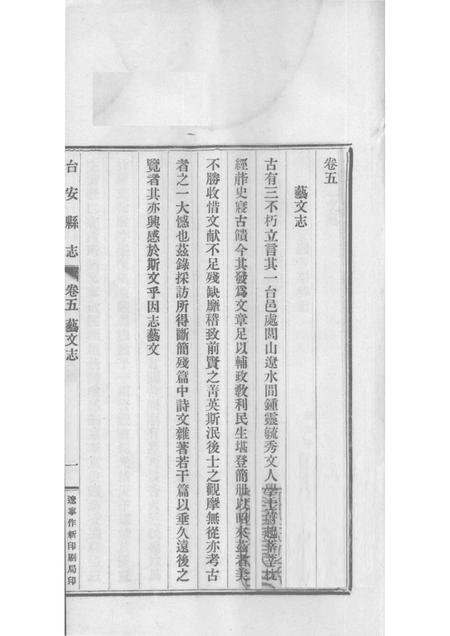 卷五
藝文志
古有三不朽立言其一台邑處閭山遼水間鍾靈毓秀文人學士蔚起莘莘枕
經葄史寢古饋今其發爲文章足以輔政敎利民生堪登簡册以昭來茲者美
不勝收惜文献不足殘缺靡稽致前賢之菁英斯泯後士之觀摩無從亦考古
者之一大憾也茲錄採訪所得斷簡殘篇中詩文雜著若干篇以垂久遠後之
覽者其亦興感於斯文乎因志藝文
台安縣志
卷五藝文志
一
遼寧作新印刷局印